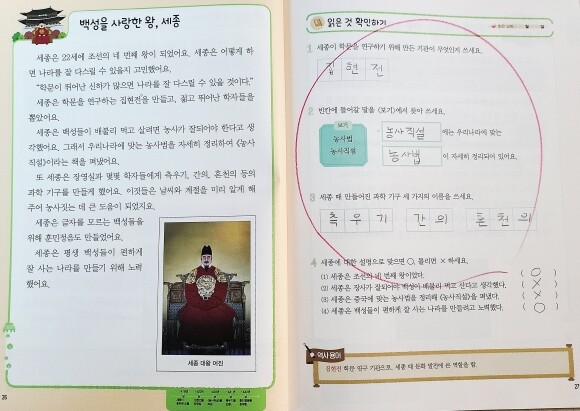 백성을 사랑한 왕, 세종
세종은 22세에 조선의 네 번째 왕이 되었어요. 세종은 어떻게 하
면 나라를 잘 다스릴 수 있을지 고민했어요.
“학문이 뛰어난 신하가 많으면 나라를 잘 다스릴 수 있을 것이다.”
세종은 학문을 연구하는 집현전을 만들고, 젊고 뛰어난 학자들을
뽑았어요.
세종은 백성들이 배불리 먹고 살려면 농사가 잘되어야 한다고 생
각했어요. 그래서 우리나라에 맞는 농사법을 자세히 정리하여 《농사
직설》이라는 책을 펴냈어요.
또 세종은 장영실과 몇몇 학자들에게 측우기, 간의, 혼천의 등의
과학 기구를 만들게 했어요. 이것들은 날씨와 계절을 미리 알게 해
주어 농사짓는 데 큰 도움이 되었지요.
세종은 글자를 모르는 백성들을
위해 훈민정음도 만들었어요.
세종은 평생 백성들이 편하게
잘 사는 나라를 만들기 위해 노력
했어요.
세종 대왕 어진
26
읽은 것 확인하기
1 세종이 학문을 연구하기 위해 만든 기관이 무엇인지 쓰세요.
집 현 전
2 빈칸에 들어갈 말을 〈보기〉에서 찾아 쓰세요.
보기
농사법
농사직설
농사직설 에는 우리나라에 맞는
농사법 이 자세히 정리되어 있어요.
3 세종 때 만들어진 과학 기구 세 가지의 이름을 쓰세요.
측 우 기 간 의 혼 천 의
4 세종에 대한 설명으로 맞으면 ○, 틀리면 × 하세요.
(1) 세종은 조선의 네 번째 왕이었다. ( ○ )
(2) 세종은 장사가 잘되어야 백성이 배불리 먹고 산다고 생각했다. ( × )
(3) 세종은 중국에 맞는 농사법을 정리해 《농사직설》을 펴냈다. ( × )
(4) 세종은 백성들이 편하게 잘 사는 나라를 만들려고 노력했다. ( ○ )
역사 용어
집현전 학문 연구 기관으로, 세종 때 문화 발전에 큰 역할을 함.
27